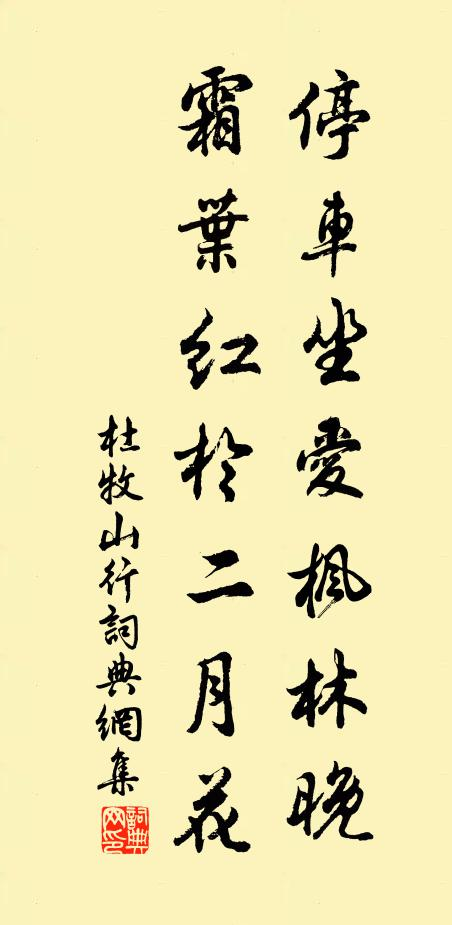 停車坐愛楓林晚
霜葉紅於二月花
杜牧山行詞典網集
詞典网印